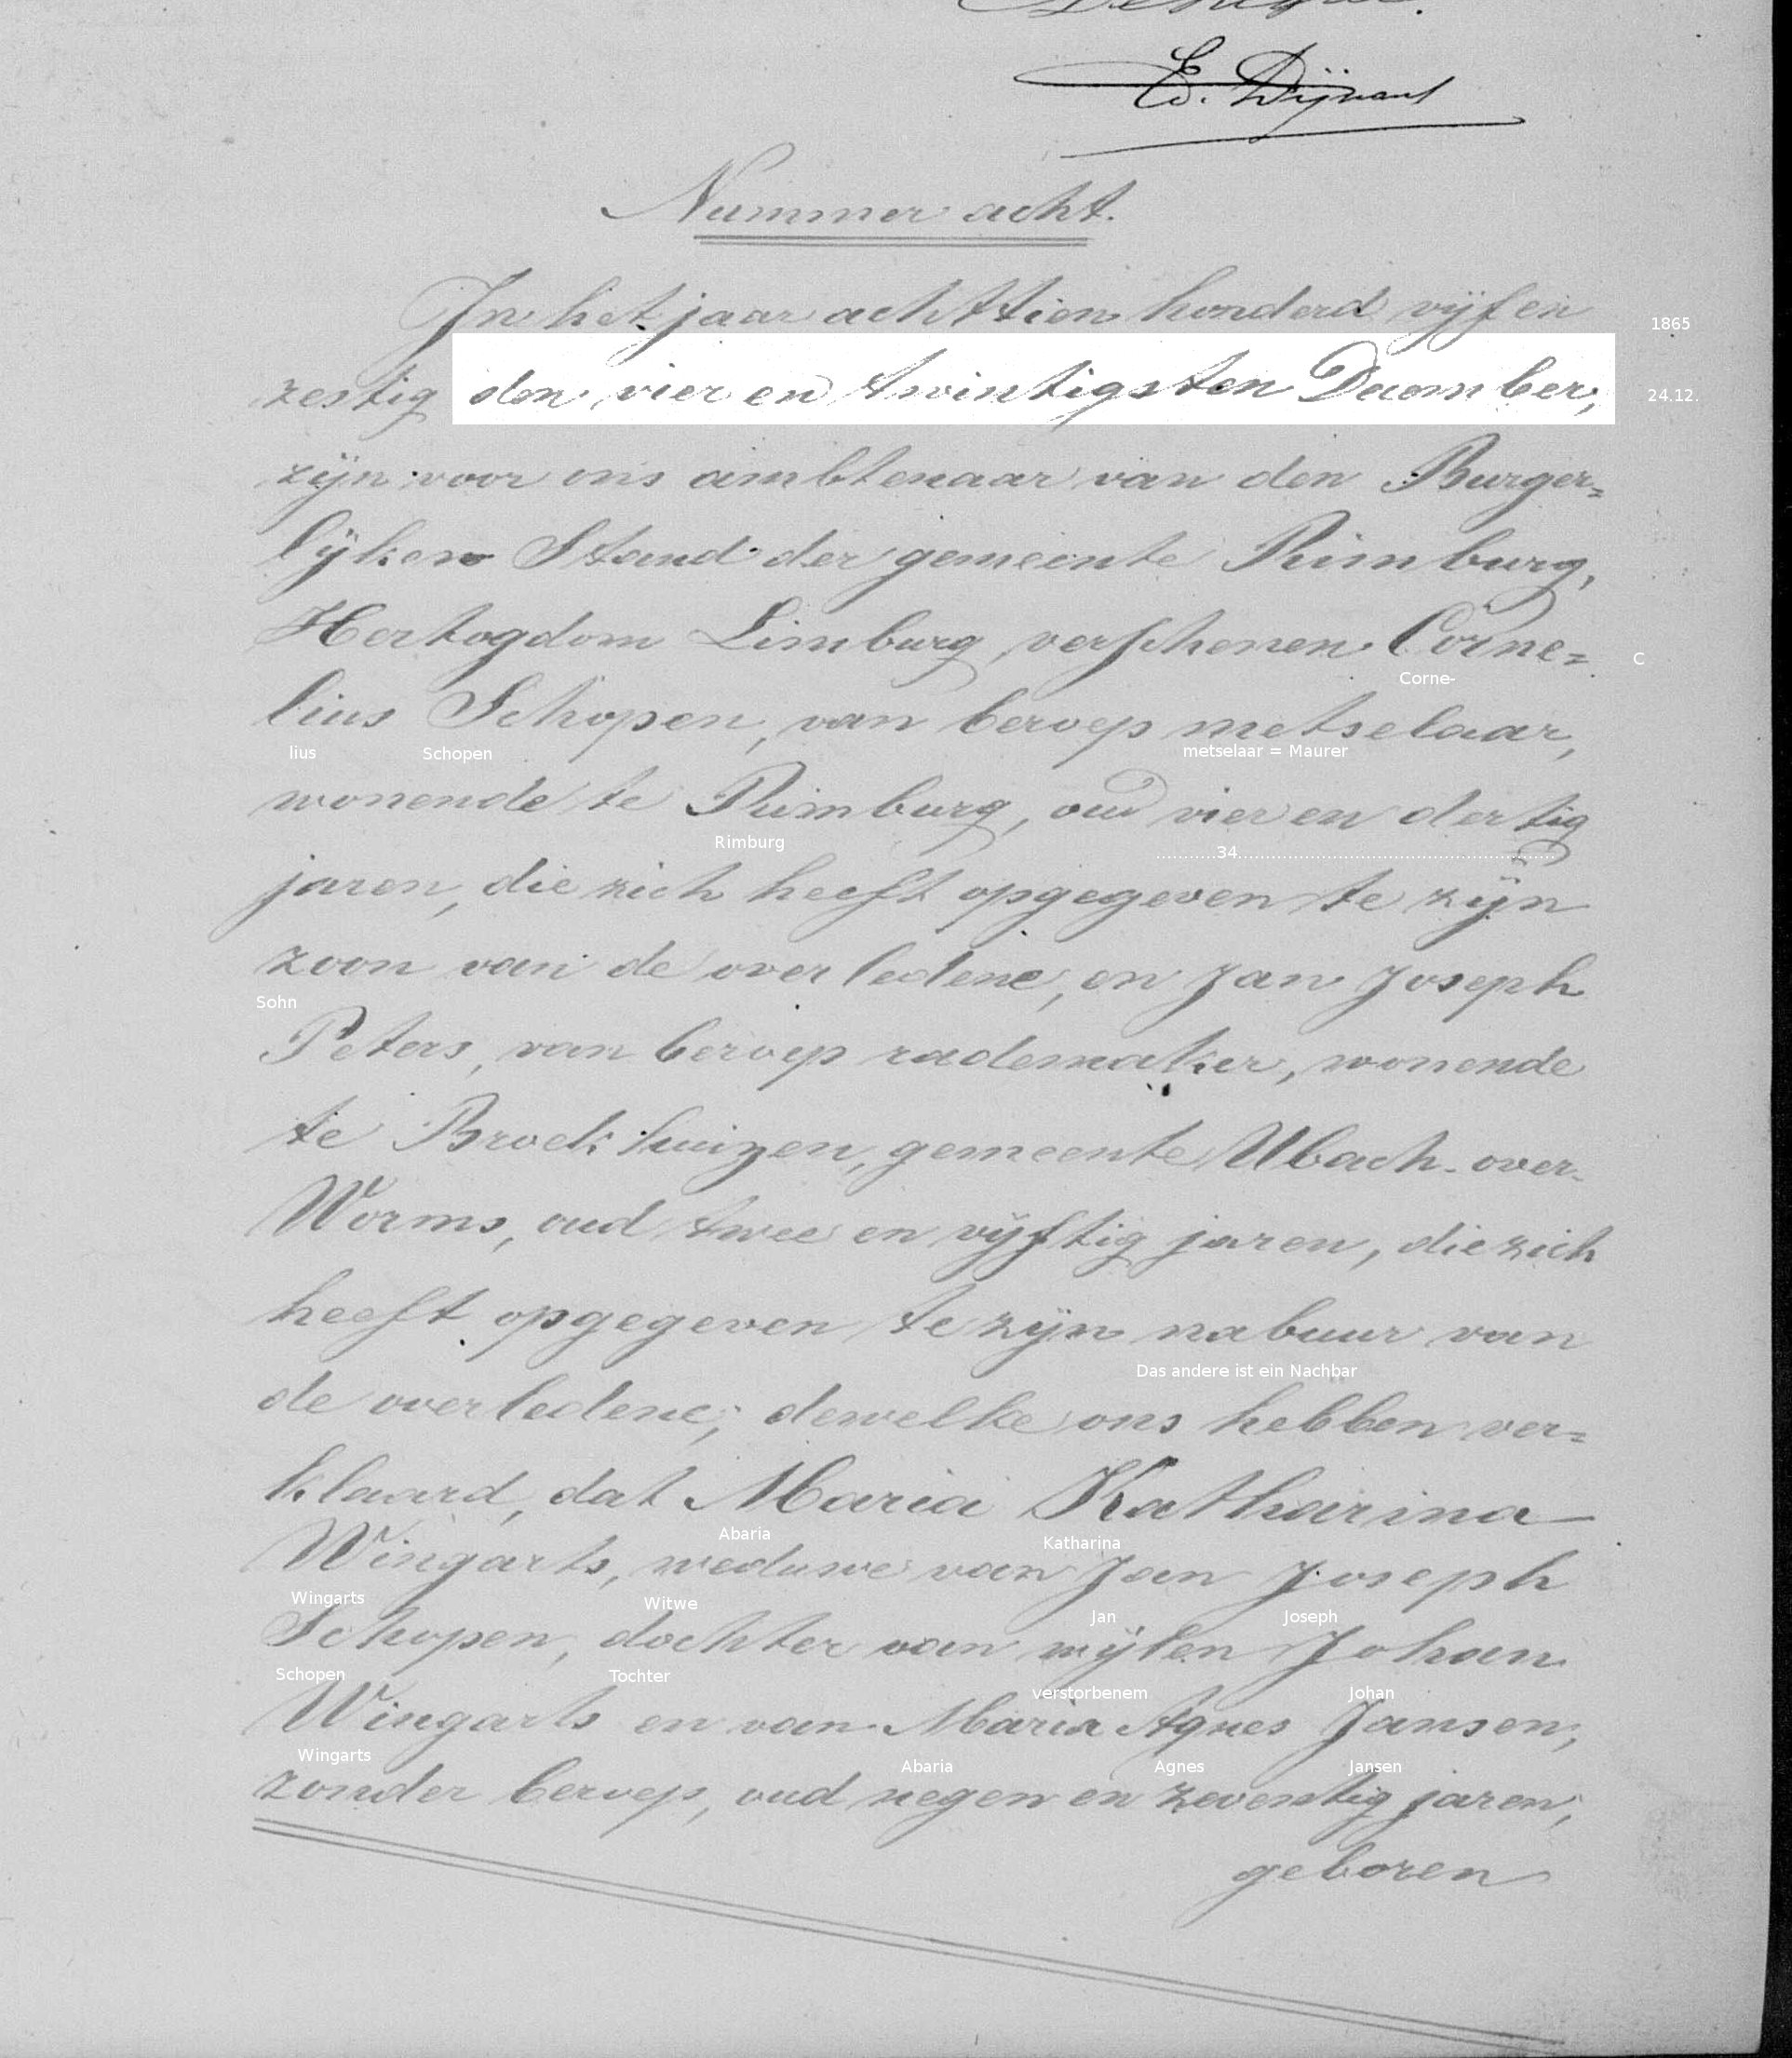 Ed. Dÿnant
Nummer acht.
In het jaar achttien honderd vijf en
1865
zestig den vier en twintigsten December,
24.12.
zijn voor ons ambtenaar van den Burger=
lijken Stand der gemeente Rimburg,
Hertogdom Limburg, verschenen Corne=
C
Corne-
lius Schopen, van beroep metselaar,
lius Schopen metselaar = Maurer
wonende te Rimburg, oud vier en dertig
Rimburg
...........34...........
jaren, die zich heeft opgegeven te zijn
zoon van de overledene, en Jan Joseph
Sohn
Peters, van beroep rademaker, wonende
te Broekhuizen, gemeente Ubach-over-
Worms, oud twee en vijftig jaren, die zich
heeft opgegeven te zijn nabuur van
Das andere ist ein Nachbar
de overledene; dewelke ons hebben ver=
klaard, dat Maria Katharina
Abaria Katharina
Wingarts, weduwe van Jan Joseph
Wingarts Witwe Jan Joseph
Schopen, dochter van wijlen Johan
Schopen Tochter verstorbenem Johan
Wingarts en van Maria Agnes Jansen,
Wingarts Abaria Agnes Jansen
zonder beroep, oud negen en zeventig jaren,
geboren